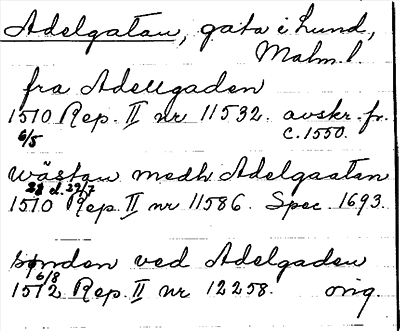 Adelgatan, gata i Lund,
Malm. l.
fra Adellgaden
1510 Rep. II nr 11532. avskr. fr.
6/5 c. 1550.
wästan medh Adelgaatan
1510 Rep. II nr 11586. Spec. 1693.
sönden ved Adelgaden
16/8
1512 Rep. II nr 12258. orig.